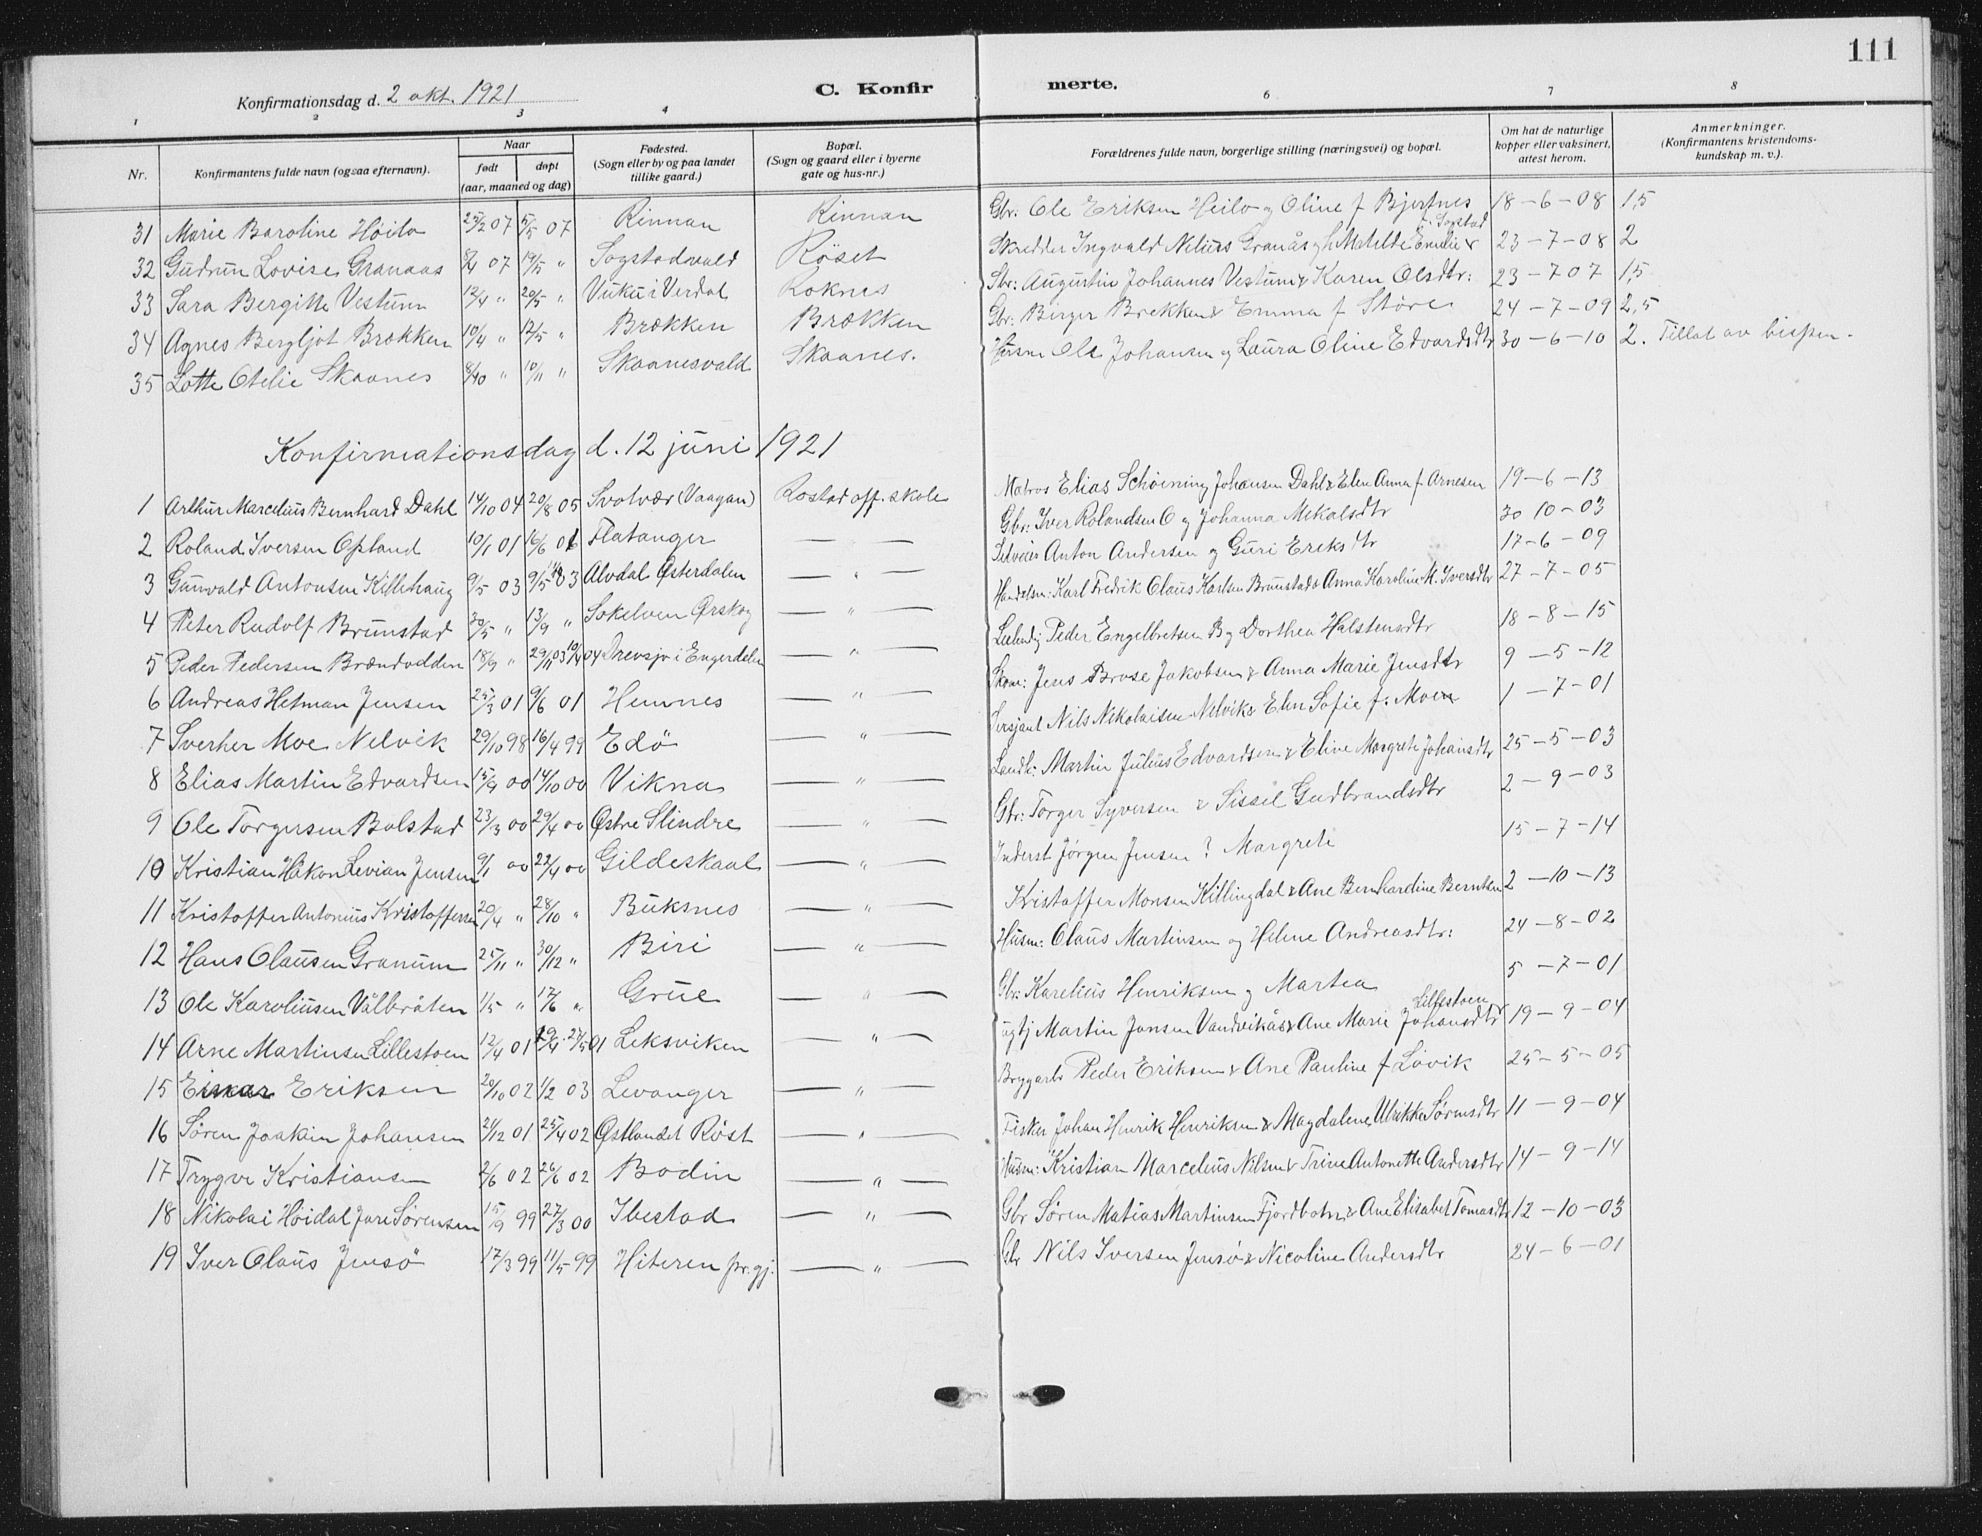 111
Konfirmationsdag d. 2 okt. 1921
C. Konfirmerte.
1 2 3 4 6 7 8
Nr. Konfirmantens fulde navn (ogsaa efternavn). Naar født døpt (aar, maaned og dag) Fødested. (Sogn eller by og paa landet tillike gaard.) Bopæl. (Sogn og gaard eller i byerne gate og hus-nr.) Forældrenes fulde navn, borgerlige stilling (næringsvei) og bopæl. Om hat de naturlige kopper eller vaksinert, attest herom. Anmerkninger. (Konfirmantens kristendomskundskap m. v.).
31 Marie Baroline Høilo 25/2 07 5/5 07 Rinnan Rinnan Gbr: Ole Eriksen Heilo og Oline f Bjertnes 18-6-08 1,5
32 Gudrun Lovise Granaas 8/4 07 19/5 " Sogstadvald Røset Skredder Ingvald Nelius Granås og Matilde Emelie f. Sogstad 23-7-08 2
33 Sara Bergitte Vestum 12/4 " 20/5 " Vuku i Verdal Roknes Sbr: Augustin Johannes Vestum & Karen Olsdtr: 23-7 07 1,5
34 Agnes Bergljot Brækken 10/4 " 12/5 " Brækken Brækken Gbr: Birger Brekken & Emma f Støre 24-7-09 2,5
35 Lotte Otelie Skaanes 8/10 " 10/11 " Skaanesvald Skaanes. Husm Ole Johansen og Laura Oline Edvardsdtr 30-6-10 2. Tillat av bispen.
Konfirmationsdag d. 12 juni 1921
1 Arthur Marcelius Bernhard Dahl 14/10 04 20/8 05 Svolvær (Vaagan) Rostad off. skole Matros Elias Schøining Johansen Dahl & Elen Anna f. Arnesen 19-6-13
2 Roland Iversen Opland 10/1 01 16/6 01 Flatanger — " — Gbr: Iver Rolandsen O og Johanna Mikalsdtr 30 10-03
3 Gunvald Antonsen Killihaug 9/5 03 9/5 03 Alvdal Østerdalen — " — Selveier Anton Andersen og Guri Ereksdtr 17-6-09
4 Peter Rudolf Brunstad 30/5 " 13/9 " Sokelven Ørskog — " — Handelsm: Karl Fredrik Claus Karlsen Brunstad & Anna Karoline M. Iversdtr 27-7-05
5 Peder Pedersen Brændvolden 18/9 " 29/11 03 10/4 04 Drevsjø i Engerdalen — " — Leilendig Peder Engelbretsen B og Dorthea Halstensdtr 18-8-15
6 Andreas Hetman Jensen 25/3 01 9/6 01 Hemnes — " — Skom: Jens Brose Jakobsen & Anna Marie Jensdtr 9-5-12
7 Sverher Moe Nelvik 29/10 98 16/4 99 Edø — " — Sersjant Nils Nikolaisen Nelvik & Elen Sofie f. Moen 1-7-01
8 Elias Martin Edvardsen 15/9 00 14/10 00 Vikna — " — Landh: Martin Julius Edvardsen & Eline Margrete Johansdtr 25-5-03
9 Ole Torgersen Bolstad 23/3 00 29/4 00 Østre Slindre — " — Gbr: Torger Syversen & Sissil Gudbrandsdtr 2-9-03
10 Kristian Håkon Levian Jensen 9/1 00 22/4 00 Gildeskaal — " — Inderst Jørgen Jensen ? Margrete 15-7-14
11 Kristoffer Antonius Kristoffersen 20/4 " 28/10 " Buksnes — " — Kristoffer Monsen Killingdal & Ane Bernhardine Berntsen 2-10-13
12 Hans Olausen Granum 25/11 " 30/12 " Biri — " — Husm: Olaus Martinsen og Helene Andreasdtr: 24-8-02
13 Ole Karoliusen Vålbråten 1/5 " 17/6 " Grue — " — Gbr: Karelius Henriksen og Martea 5-7-01
14 Arne Martinsen Lillestoen 12/4 01 29/4 27/5 01 Leksviken — " — ugtj Martin Jansen Vandvikås & Ane Marie Johansdtr Lillestoen 19-9-04
15 Einar Eriksen 20/10 02 1/2 03 Levanger — " — Bryggarb Peder Eriksen & Ane Pauline f Løvik 25-5-05
16 Søren Joakim Johansen 21/12 01 25/4 02 Østlandet Røst — " — Fisker Johan Henrik Henriksen & Magdalene Ulrikke Sørensdtr 11-9-04
17 Trygve Kristiansen 2/6 02 26/6 02 Bodin — " — Husm: Kristian Marcelius Nilsen & Trine Antonette Andersdtr 14-9-14
18 Nikolai Høidal Jare Sørensen 15/9 99 27/3 00 Ibestad — " — Gbr Søren Matias Martinsen Fjordbotn & Ane Elisabet Tomasdtr 12-10-03
19 Iver Olaus Jensø 17/3 99 11/5 99 Hiteren pr. gj. — " — Gbr Nils Iversen Jensø & Nicoline Andersdtr 24-6-01